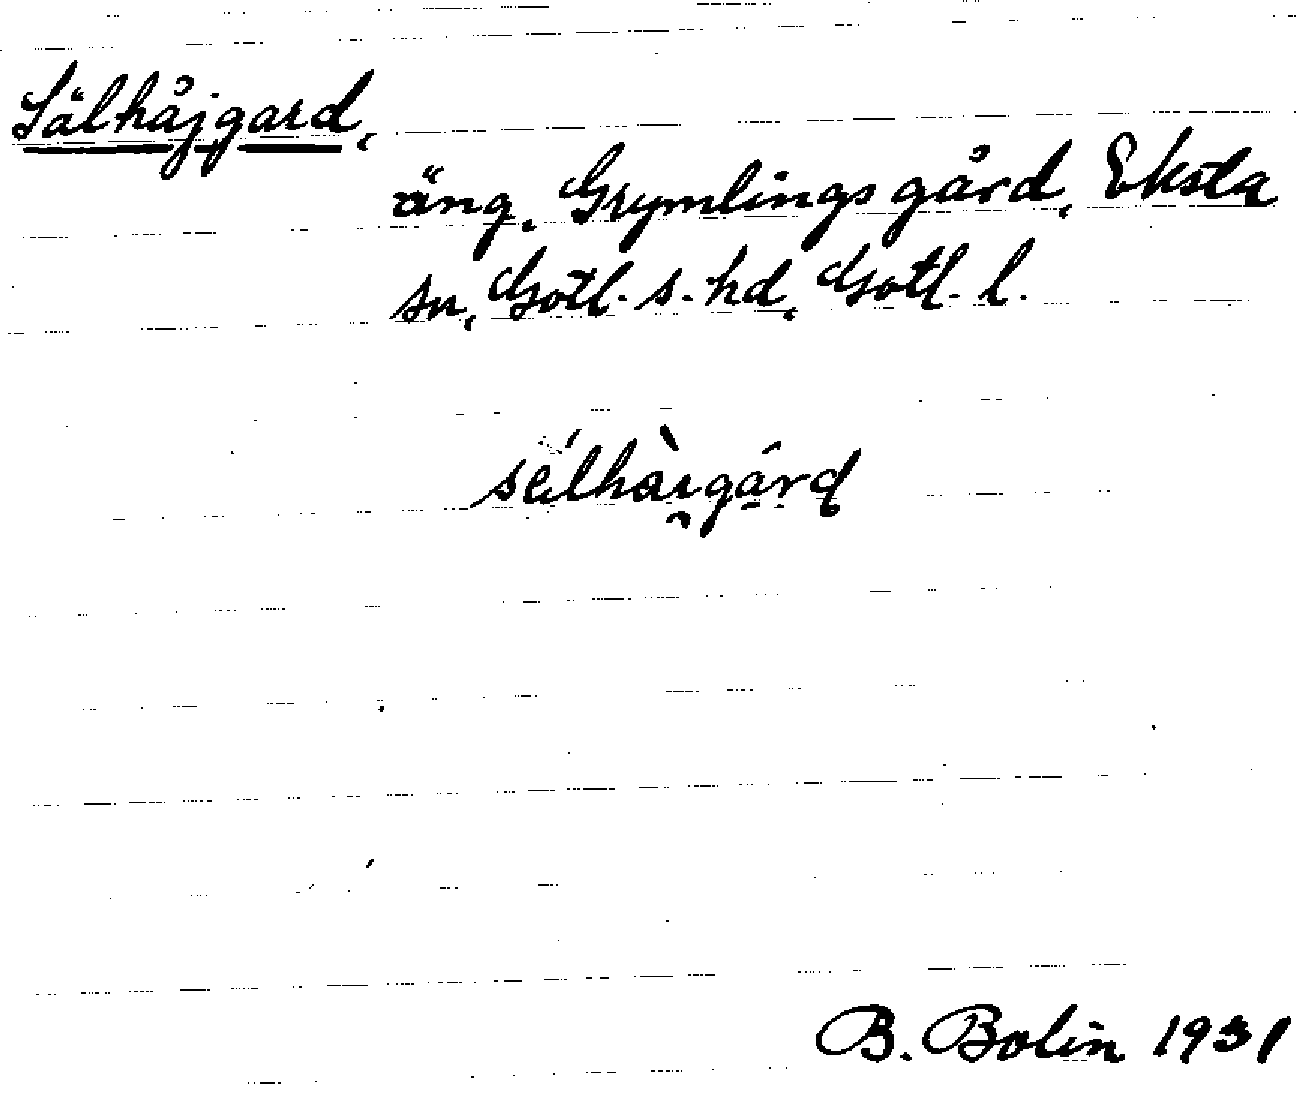 Sälhåjgard,
äng, Grymlings gård, Eksta
sn, Gotl. s. hd, Gotl. l.
sélhàrgard
B. Bolin 1931